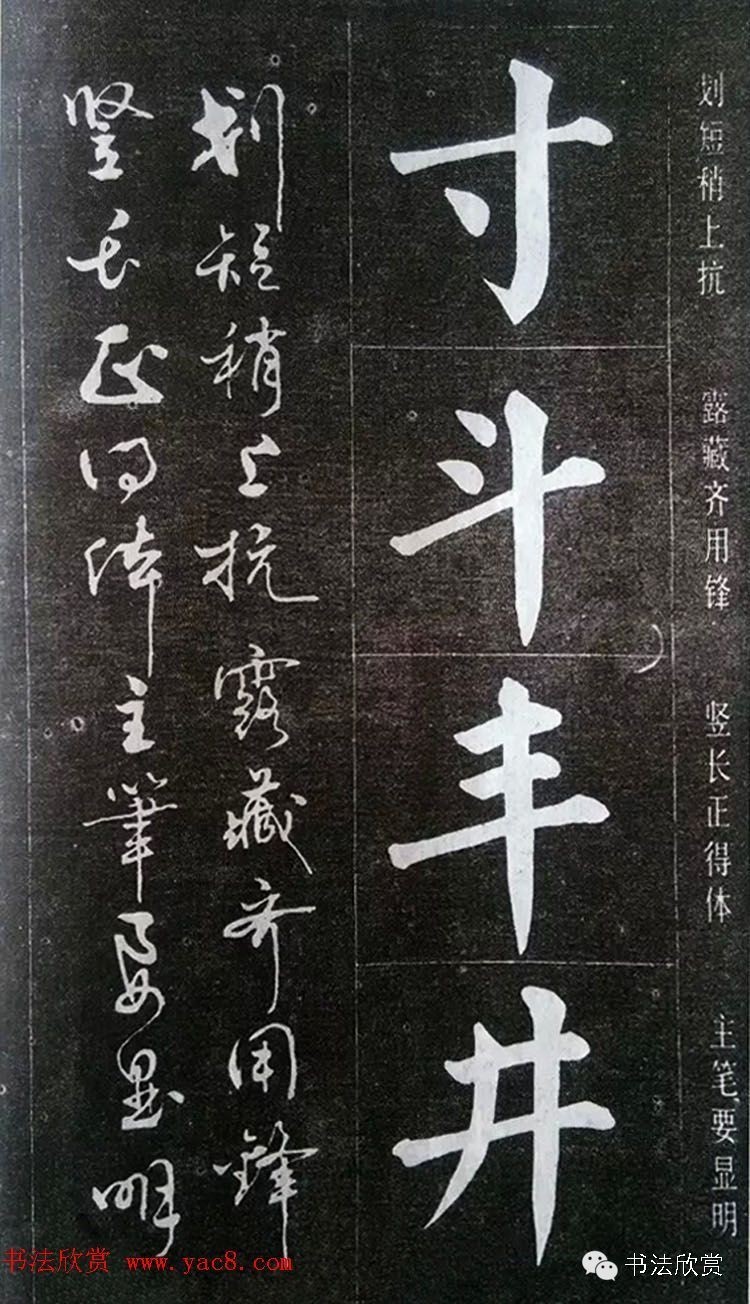 划短稍上抗 露藏齐用锋 竖长正得体 主笔要显明
寸斗丰井
划短稍上抗露藏齐用锋
竖长正得体主筆要显明
书法欣赏 www.yac8.com
书法欣赏